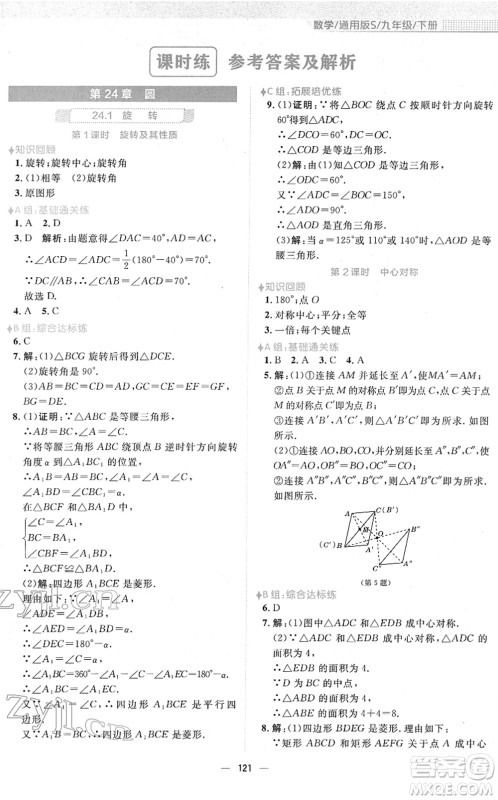 数学/通用版S/九年级/下册
课时练 参考答案及解析
第24章 圆
24.1 旋 转
第1课时 旋转及其性质
知识回顾
1. 旋转;旋转中心;旋转角
2. (1)相等 (2)旋转角
3. 原图形
A组:基础通关练
1. A 2. D
3. D 解析:由题意得∠DAC=40°,AD=AC,
∴∠ACD=∠ADC=1/2(180°-40°)=70°.
∵DC∥AB,∴∠α=∠ACD=70°.
故选D.
4. A 5. C
B组:综合达标练
6. C
7. 解:(1)△BCG 旋转后能与△DCE 重合.
(2)旋转角是90°.
(3)△ACD≌△ABC,△BCG≌△DCE.
8. (1)证明:∵△ABC 是等腰三角形,
∴AB=BC,∠A=∠C.
∵将等腰三角形 ABC 绕顶点 B 逆时针方向旋转
角度α到△A₁BC₁的位置,
∴A₁B=AB=BC,∠A=∠A₁=∠C,
∠A₁BD=∠CBC₁=α.
在△BCF 和△BA₁D 中,
∠C=∠A₁,
BC=A₁B,
∠CBF=∠A₁BD,
∴△BCF≌△BA₁D.
(2)解:四边形 A₁BCE 是菱形.
理由如下:∵∠A₁=∠A,
∠ADE=∠A₁DB,
∴∠AED=∠A₁BD=α.
∴∠DEC=180°-α.
∵∠C=α,
∴∠A₁=α.
∴∠A₁BC=360°-∠A₁-∠C-∠A₁EC=180°-α.
∴∠A₁=∠C,∠A₁BC=∠A₁EC.
∴四边形 A₁BCE 是平行四边形.
又∵A₁B=BC,∴四边形 A₁BCE 是菱形.
C组:拓展培优练
9. (1)证明:∵将△BOC 绕点 C 按顺时针方向旋转
60°得△ADC,
∴△BOC≌△ADC,∠OCD=60°.
∴CO=CD.
∴△COD 是等边三角形.
(2)解:△AOD 是直角三角形.
理由如下:∵△COD 是等边三角形,
∴∠CDO=60°.
∵∠ADC=∠BOC=α=150°,
∴∠ADO=∠ADC-∠CDO=90°.
∴△AOD 是直角三角形.
(3)解:当α=125°或110°或140°时,△AOD 是等
腰三角形.
第2课时 中心对称
知识回顾
1. 180°;点O
2. 对称中心;平分;全等
3. 一倍;每个关键点
A组:基础通关练
1. B 2. A 3. C 4. A
5. 解:(1)①连接 AM 并延长至 A′,使 A′M=AM;
②点 B 关于点 M 的对称点 B′即为点 C,点 C 关于点
M 的对称点 C′即为点 B;
③连接 A′B′,A′C′,△A′B′C′即为所求.如图
所示.
(2)①连接 AO,BO,CO,并延长至 A″,B″,C″,使
OA″=AO,OB″=BO,OC″=CO;
②连接 A″B″,A″C″,B″C″,△A″B″C″即为所求.
如图所示!
A C(B′) B″ M O B(C′) A′ C″ A″
(第5题)
B组:综合达标练
6. D
7. 解:(1)图中△ADC 和△EDB 成中心对称.
(2)∵△ADC 和△EDB 成中心对称,△ADC 的面
积为4,
∴△EDB 的面积为4.
∵D 为 BC 的中点,
∴△ABD 的面积为4.
∴△ABE 的面积为4+4=8.
8. 解:(1)四边形 BDEF 是菱形.理由如下:
∵矩形 ABCD 和矩形 AEFG 关于点 A 中心
121
答案圈